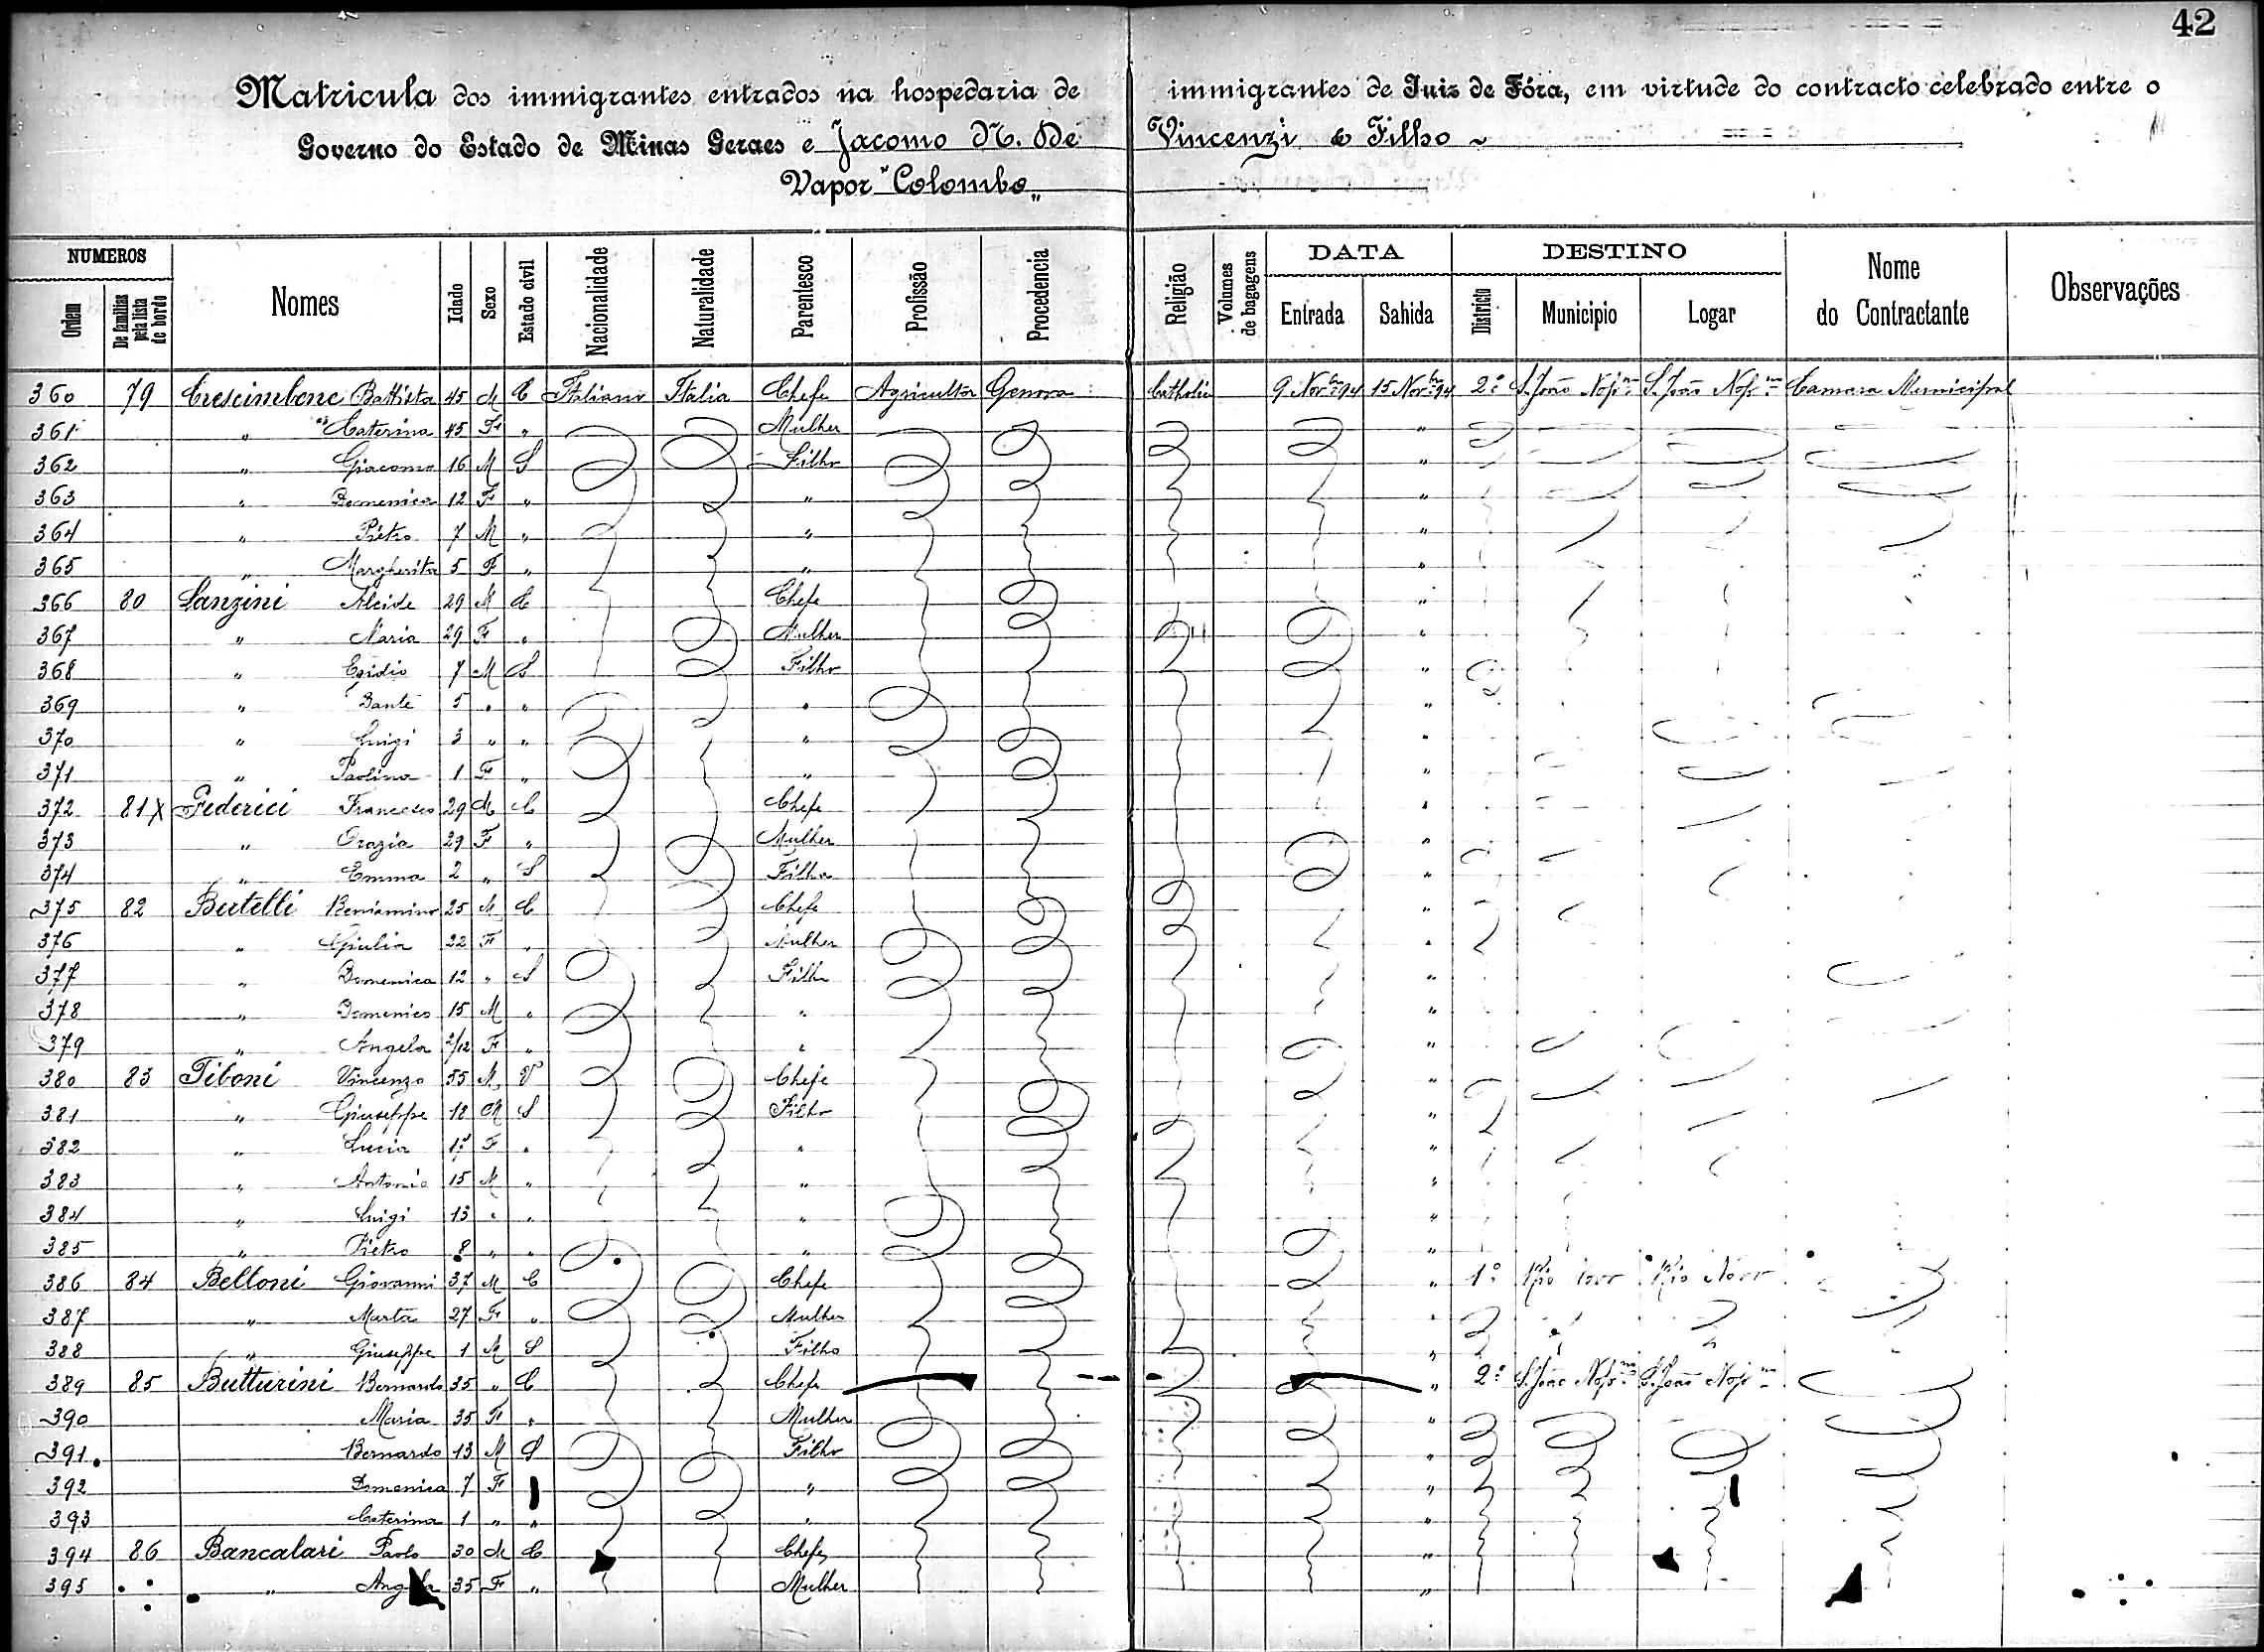 42
Matricula dos immigrantes entrados na hospedaria de immigrantes de Juiz de Fóra, em virtude do contracto celebrado entre o
Governo do Estado de Minas Geraes e Jacomo N. De Vincenzi & Filho
Vapor "Colombo"
NUMEROS
DATA
DESTINO
Ordem De familias pela lista de bordo Nomes Idade Sexo Estado civil Nacionalidade Naturalidade Parentesco Profissão Procedencia Religião Volumes de bagagens Entrada Sahida Districto Municipio Logar Nome do Contractante Observações
360 79 Crescimbene Battista 45 M C Italiano Italia Chefe Agricultor Genova Catholica 9 Novbro 94 15 Novbro 94 2º S. João Nepno S. João Nepno Camara Municipal
361 " Caterina 45 F " Mulher "
362 " Giacomo 16 M S Filho "
363 " Domenica 12 F " " "
364 " Pietro 7 M " " "
365 " Margherita 5 F " " "
366 80 Lanzini Alcide 29 M C Chefe "
367 " Maria 29 F " Mulher "
368 " Egidio 7 M S Filho "
369 " Dante 5 " " " "
370 " Luigi 3 " " " "
371 " Paolina 1 F " " "
372 81 X Federici Francesco 29 M C Chefe "
373 " Orazia 29 F " Mulher "
374 " Emma 2 " S Filha "
375 82 Bertelli Beniamino 25 M C Chefe "
376 " Giulia 22 F " Mulher "
377 " Domenica 12 " S Filha "
378 " Domenico 15 M " " "
379 " Angela 2/12 F " " "
380 83 Tiboni Vincenzo 55 M V Chefe "
381 " Giuseppe 18 M S Filho "
382 " Lucia 17 F " " "
383 " Antonio 15 M " " "
384 " Luigi 13 " " " "
385 " Pietro 8 " " " "
386 84 Belloni Giovanni 37 M C Chefe " 1º Rio Novo Rio Novo
387 " Marta 27 F " Mulher "
388 " Giuseppe 1 M S Filho "
389 85 Butturini Bernardo 35 " C Chefe " 2º S. João Nepno S. João Nepno
390 Maria 35 F " Mulher "
391 Bernardo 13 M S Filho "
392 Domenica 7 F " "
393 Caterina 1 " " " "
394 86 Bancalari Paolo 30 M C Chefe "
395 " Angela 35 F " Mulher "